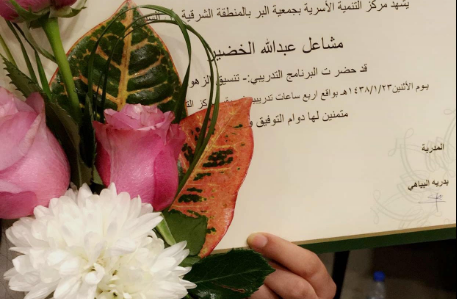 يشهد مركز التنمية الأسرية بجمعية البر بالمنطقة الشرقية
مشاعل عبدالله الخضير
قد حضرت البرنامج التدريبي:- تنسيق الزهو
يوم الأثنين ١٤٣٨/١/٢٣هـ بواقع اربع ساعات تدريبية
متمنين لها دوام التوفيق و
المدربة
بدريه البياهي